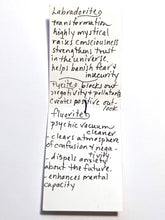 Labradorite
transformation
highly mystical
raises consciousness
strengthens trust
in the universe
helps banish fear &
insecurity
Pyrite blocks out
negativity & pollutants
creates positive out-
look
fluorite
psychic vacuum
cleaner
- clears atmosphere
of confusion & nega-
tivity
- dispels anxiety
about the future.
- enhances mental
capacity